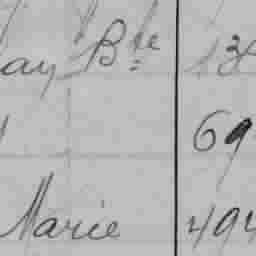 ay Bte 13
69
Marie 494